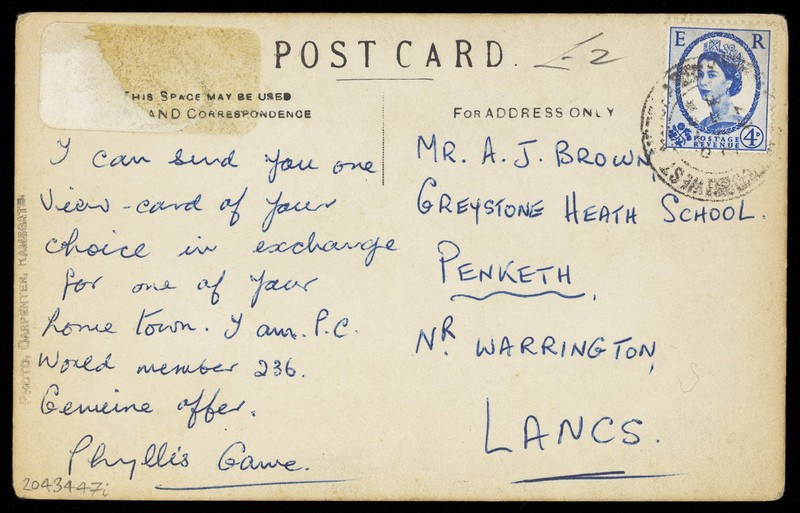 POST CARD.
£-2
THIS SPACE MAY BE USED
AND CORRESPONDENCE
FOR ADDRESS ONLY
E R
POSTAGE
REVENUE
4D
I can send you one
View-card of your
choice in exchange
for one of your
home town. I am P.C.
World member 236.
Genuine offer.
Phyllis Gawe.
MR. A. J. BROWN,
GREYSTONE HEATH SCHOOL.
PENKETH,
NR. WARRINGTON,
LANCS.
PHOTO, CARPENTER, RAMSGATE
2043447i